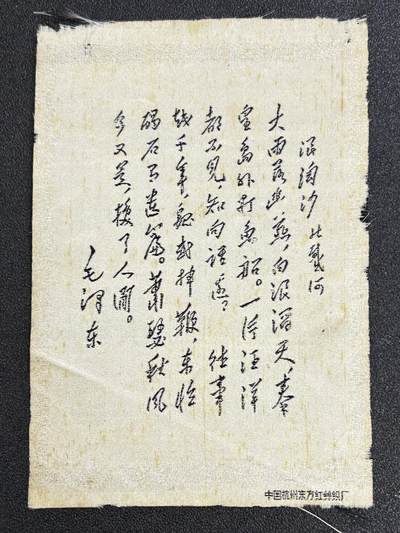 浪淘沙 北戴河
大雨落幽燕,白浪滔天,秦
皇島外打魚船。一片汪洋
都不見,知向誰邊? 往事
越千年,魏武揮鞭,东临
碣石有遺篇。蕭瑟秋風
今又是,換了人間。
毛澤东
中国杭州东方红丝织厂